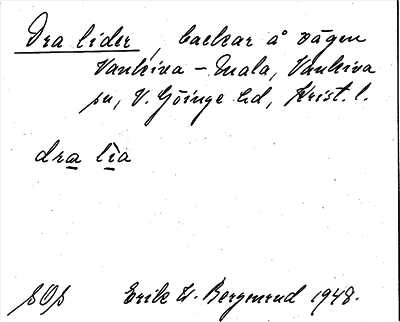 Dra lider, backar å vägen
Vankiva – Mala, Vankiva
sn, V. Göinge hd, Krist. l.
dra lia
SOS Erik W. Bergenrud 1948.